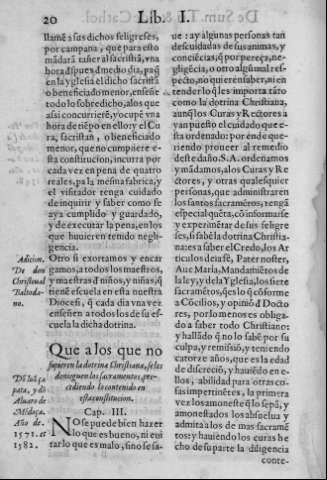 20 Lib. I.
llamẽ a sus dichos feligreses,
por campana, que para esto
mãdarã tañer al sacristã, vna
hora dspues d medio dia, paq̃
en la yglesia el dicho sacristã
o beneficiado menor, enseñe
todo lo sobredicho, a los que
assi concurrierẽ, y ocupẽ vna
hora de tiẽpo en ello: y el Cu
ra, sacristan, o beneficiado
menor, que no cumpliere e-
sta constitucion, incurra por
cada vez en pena de quatro
reales, pa la mesma fabrica, y
el visitador tenga cuidado
de inquirir y saber como se
aya cumplido y guardado,
y de executar la pena, en los
que huuieren tenido negli
gencia.
Adicion.
De don
Christoual
Otro si exortamos y encar
gamos, a todos los maestros,
y maestras d niños, y niñas, q̃
tienẽ escuela en esta nuestra
Diocesi, q̃ cada dia vna vez
enseñen a todos los de su es-
cuela la dicha dotrina.
Que a los que no
supieren la dotrina Christiana, se les
denieguen los sacramentos, pre-
cediendo lo contenido en
esta constitucion.
Cap. III.
Aluaro de
Mẽdoça.
Año de
1571. et
1582.
NO se puede bien hazer
lo que es bueno, ni eui
tar lo que es malo, sino se sa-
ue: ay algunas personas tan
descuidadas de sus animas, y
conciẽcias, q̃ por pereça, ne-
gligẽcia, o otro algũ mal res-
pecto, no quierẽ saber, ni en
tender lo q̃ les importa tãto
como la dotrina Christiana,
aunq̃ los Curas y Rectores a
yan puesto el cuidado que e-
sta ordenado: por ende que-
riendo proueer al remedio
deste daño. S. A. ordenamos
y mãdamos, a los Curas y Re
ctores, y otras qualesquier
personas, que administraren
los santos sacramẽtos, tengã
especial quẽta, cõ informarse
y experimẽtar de sus feligre
ses, si sabẽ la dotrina Christia
na: es a saber el Credo, los Ar
ticulos de la fẽ, Pater noster,
Aue Maria, Mandamiẽtos de
la ley, y de la Yglesia, los siete
sacramẽtos, q̃es lo q̃ cõforme
a Cõcilios, y opiniõ d Docto
res, por lo menos es obliga-
do a saber todo Christiano:
y hallãdo q̃ no lo sabẽ por su
culpa, y remissiõ, y teniendo
catorze años, que es la edad
de discreciõ, y hauiẽdo en e-
llos, abilidad para otras co-
sas impertinẽtes, la primera
vez los amonestẽ q̃ lo sepã, y
amonestados los absuelua y
admita a los de mas sacramẽ
tos: y hauiendo los curas he
cho de su parte la diligencia
conte-